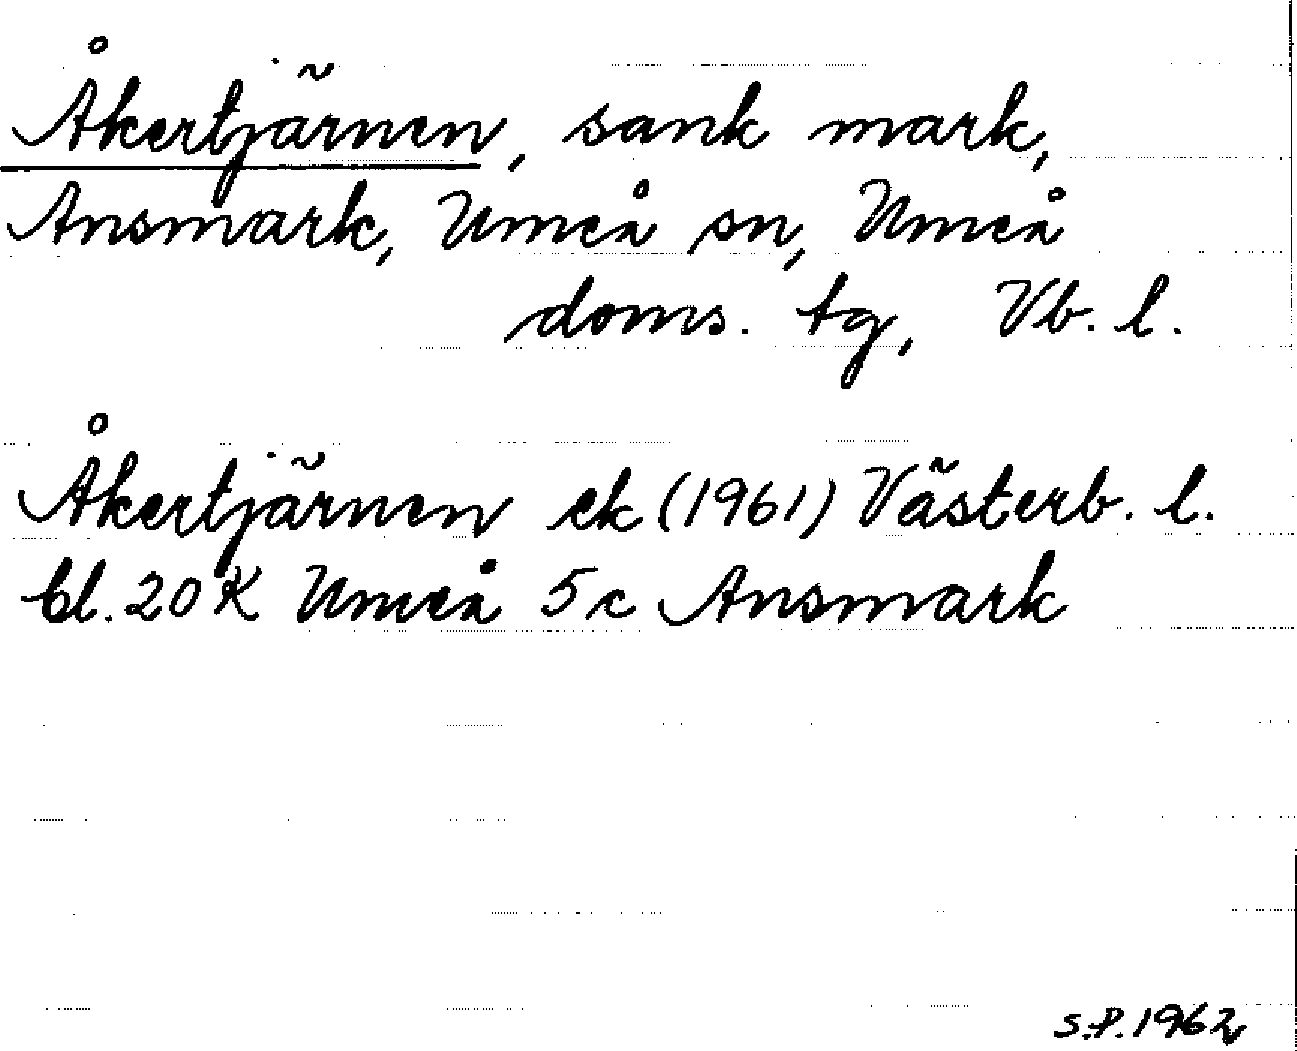 Åkertjärnen, sank mark,
Ansmark, Umeå sn, Umeå
doms. tg, Vb. l.
Åkertjärnen ek (1961) Västerb. l.
bl. 20 K Umeå 5c Ansmark
S.P. 1962